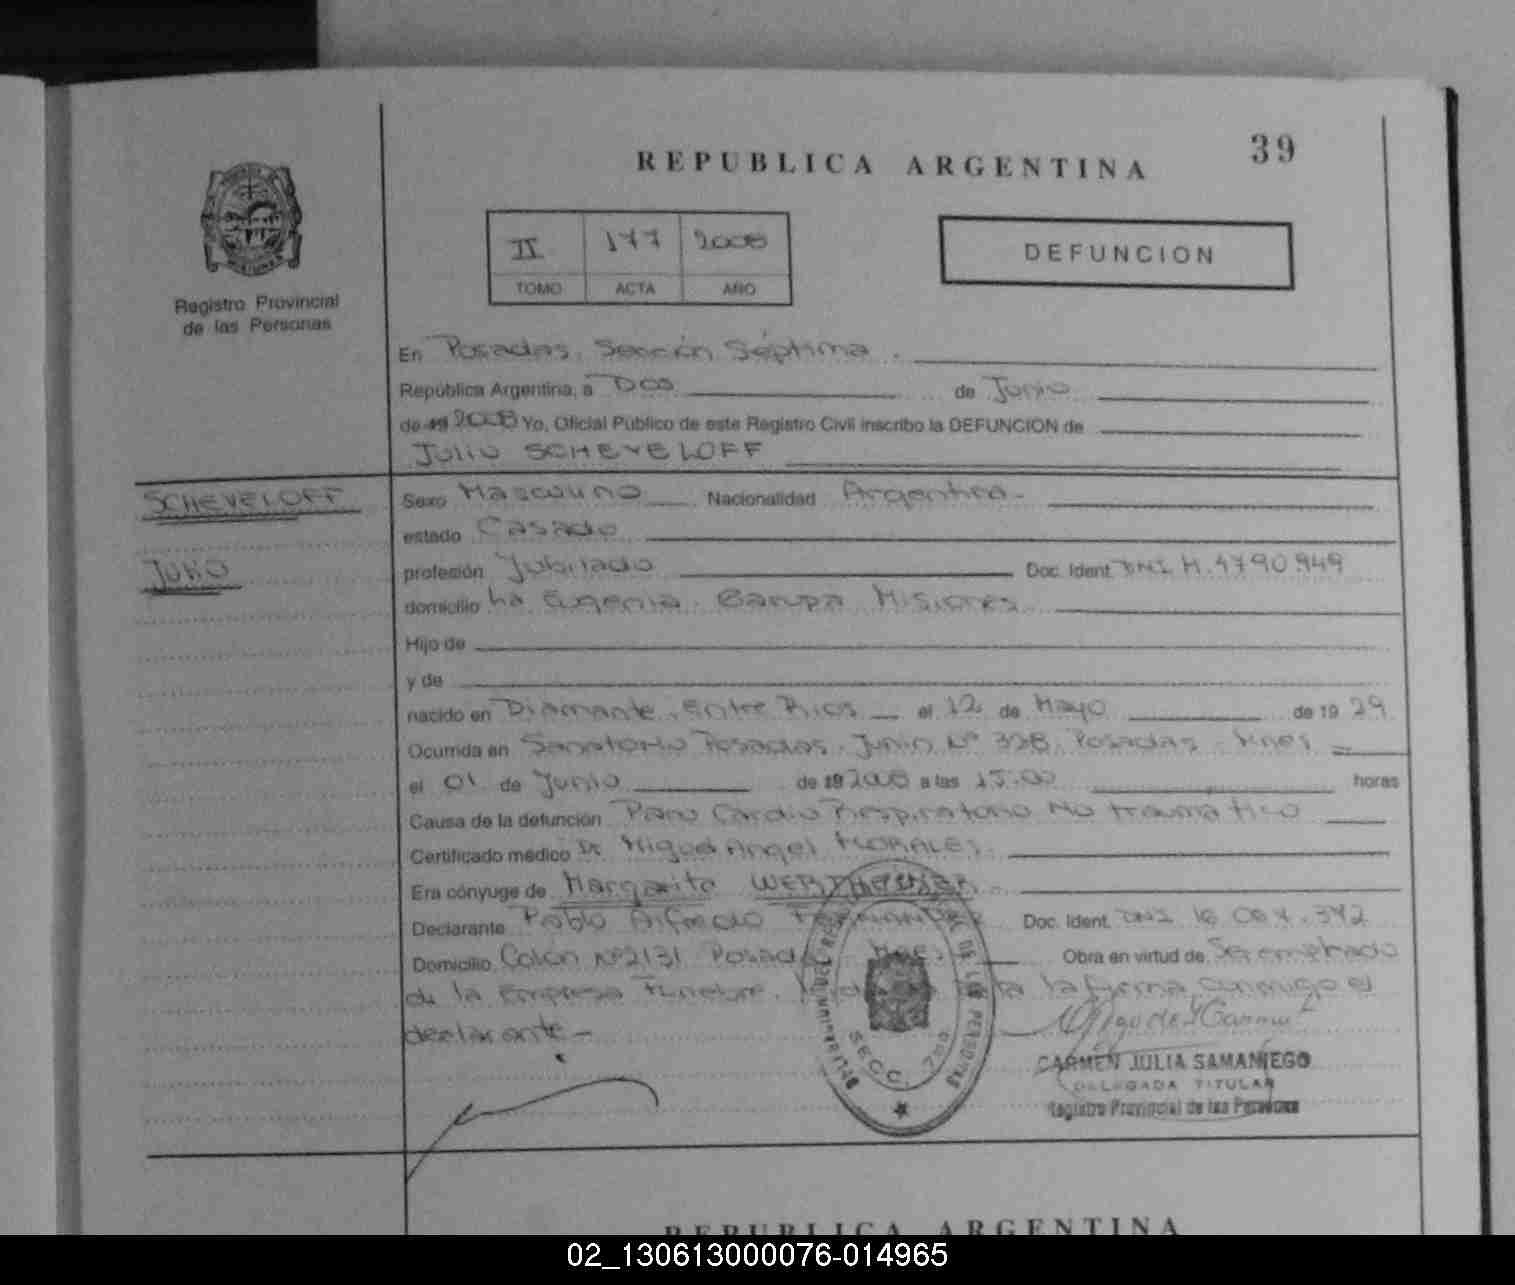 39
REPUBLICA ARGENTINA
II 177 2008
TOMO ACTA AÑO
DEFUNCION
MISIONES
Registro Provincial
de las Personas
En Posadas, Sección Séptima.
República Argentina, a Dos de Junio
de 19 2008 Yo, Oficial Público de este Registro Civil inscribo la DEFUNCION de
Julio SCHEVELOFF
SCHEVELOFF
Julio
Sexo Masculino Nacionalidad Argentina-
estado Casado
profesión Jubilado Doc. Ident. DNI M. 1790.949
domicilio La Eugenia. Garupa Misiones
Hijo de
y de
nacido en Diamante, Entre Rios el 12 de Mayo de 19 29
Ocurrida en Sanatorio Posadas, Junin Nº 328, Posadas, Mnes
el 01 de Junio de 19 2008 a las 15:00 horas
Causa de la defunción Paro Cardio Respiratorio No traumatico
Certificado médico Dr Miguel Angel MORALES
Era cónyuge de Margarita
Declarante Pablo Alfredo FERNANDEZ Doc. Ident. DNI 16.064.372
Domicilio Colón Nº 2131 Posadas Mnes. Obra en virtud de Ser empleado
de la Empresa Funebre. la firma conmigo el
declarante-
SECC. 7ma
DE LAS PERSONAS
CARMEN JULIA SAMANIEGO
DELEGADA TITULAR
Registro Provincial de las Personas
REPUBLICA ARGENTINA
02_130613000076-014965